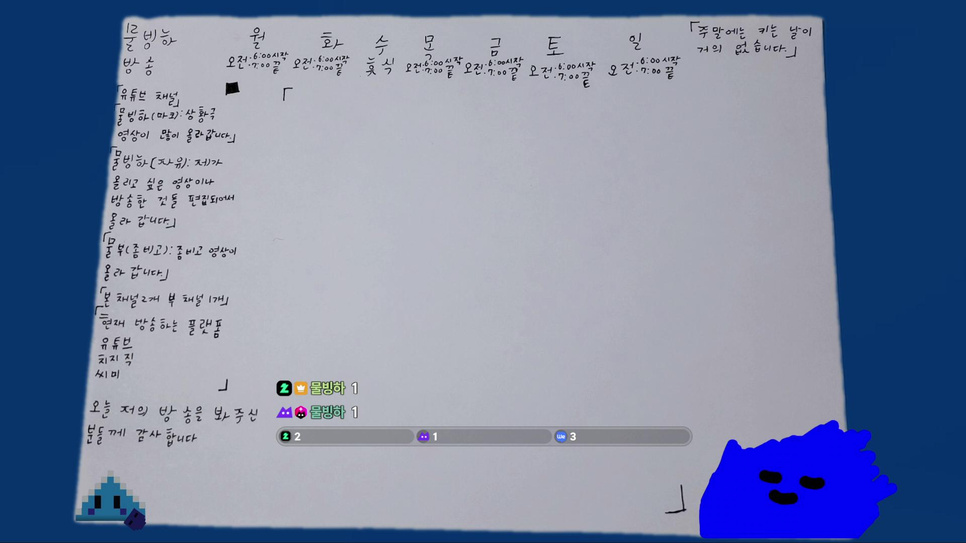 물빙하
방송
월 화 수 목 금 토 일
오전:6:00시작
:7:00 끝
오전:6:00시작
:7:00 끝
휴식
오전:6:00시작
:7:00 끝
오전:6:00시작
:7:00 끝
오전:6:00시작
:7:00 끝
오전:6:00시작
:7:00 끝
「주말에는 키는 날이
거의 없습니다.」
「유튜브 채널」
물빙하(마크): 상황극
영상이 많이 올라갑니다」
「물빙하(자유): 제가
올리고 싶은 영상이나
방송한 것들 편집되어서
올라 갑니다」
「물부(좀비고): 좀비고 영상이
올라 갑니다」
「본 채널 2개 부 채널 1개」
「현재 방송하는 플랫폼
유튜브
치지직
씨미
」
오늘 저의 방송을 봐주신
분들께 감사합니다
「
」
물빙하 1
물빙하 1
2 1 3